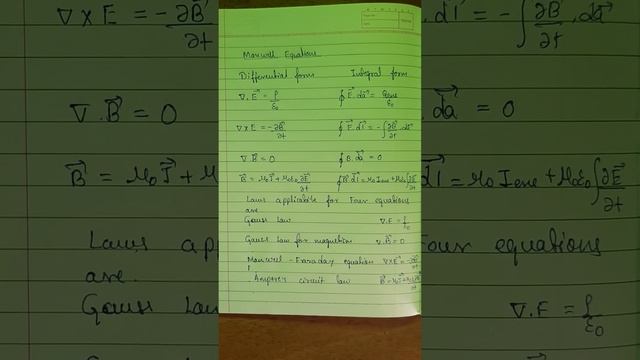 Maxwell Equations
Differential form Integral form
∇.E⃗ = ρ/ε₀ ∮E⃗.da⃗ = Qenc/ε₀
∇×E = -∂B⃗/∂t ∮E⃗.dl⃗ = -∫∂B⃗/∂t.da⃗
∇.B⃗ = 0 ∮B.da⃗ = 0
B⃗ = μ₀J⃗ + μ₀ε₀∂E⃗/∂t ∮B⃗.dl⃗ = μ₀Ienc + μ₀ε₀∫∂E⃗/∂t
Laws applicable for Four equations
are
Gauss Law ∇.E = ρ/ε₀
Gauss Law for magnetism ∇.B⃗ = 0
Maxwell - Faraday equation ∇×E⃗ = -∂B⃗/∂t
Amperes circuit law B⃗ = μ₀J⃗ + μ₀ε₀∂E⃗/∂t